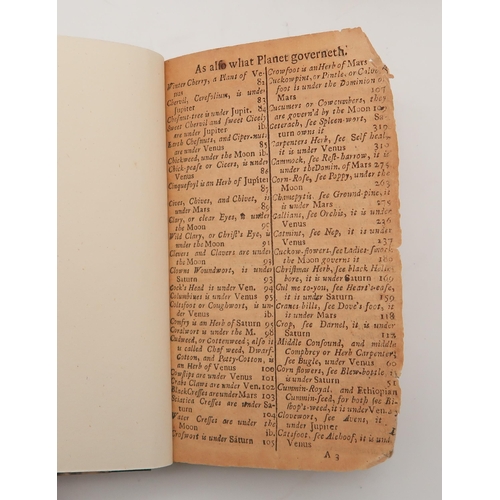 As also what Planet governeth.
Winter Cherry, a Plant of Ve-
nus 81
Chervil, Cerefolium, is under
Jupiter 83
Chesnut-tree is under Jupit. 83
Sweet Chervil and sweet Cicely
are under Jupiter ib.
Earth Chesnuts, and Ciper-nuts
are under Venus
Chickweed, under the Moon ib.
Chick-pease or Cicers, is under
Venus
Cinquefoyl is an Herb of Jupiter
87
Cives, Chives, and Chivet, is
under Mars 89
Clary, or clear Eye, is under
the Moon 90
Wild Clary, or Christ's Eye, is
under the Moon 91
Clavers and Clavers are under
the Moon 93
Clowns Woundwort, is under
Saturn
Cock's Head is under Ven. 94
Columbines is under Venus 95
Coltsfoot or Coughwort, is un-
der Venus ib.
Comfry is an Herb of Saturn 95
Coralwort is under the M. 98
Cudweed, or Cottonweed; also it
is called Chaf weed, Dwarf-
Cotton, and Patty-Cotton, is
an Herb of Venus 100
Cowslips are under Venus 101
Crabs Claws are under Ven. 102
Black Cresses are under Mars 103
Sciatica Cresses are under Sa-
turn 104
Water Cresses are under the
Moon ib.
Croswort is under Saturn 105
Crowfoot is an Herb of Mars
Cuckowpint, or Pintle, or Calves-
foot is under the Dominion of
Mars 107
Cucumers or Cowcumbers, they
are govern'd by the Moon 109
Ceterach, see Spleen-wort, Sa-
turn owns it 319
Carpenters Herb, see Self heal,
it is under Venus 310
Cammock, see Rest-harrow, it is
under the Domin. of Mars 275
Corn-Rose, see Poppy, under the
Moon 263
Chamepytis, see Ground-pine, it
is under Mars
Galliane, see Orchis, it is under
Venus
Catmint, see Nep, it is under
Venus 237
Cuckow-flowers, see Ladies-smock
the Moon governs it 180
Christmas Herb, see black Helle-
bore, it is under Saturn
Cul me to you, see Heart's-ease,
it is under Saturn 150
Cranes bills, see Dove's foot, it
is under Mars 118
Crop, see Darnel, it is under
Saturn 112
Middle Confound, and middle
Comphrey or Herb Carpenter
see Bugle, under Venus 60
Corn flowers, see Blew-bottle it
is under Saturn 51
Cummin-Royal, and Ethiopian
Cummin-seed, for both see Bi-
shop's-weed, it is under Ven.
Clovewort, see Avens, it is
under Jupiter
Catsfoot, see Alehoof, it is under
Venus
A 3